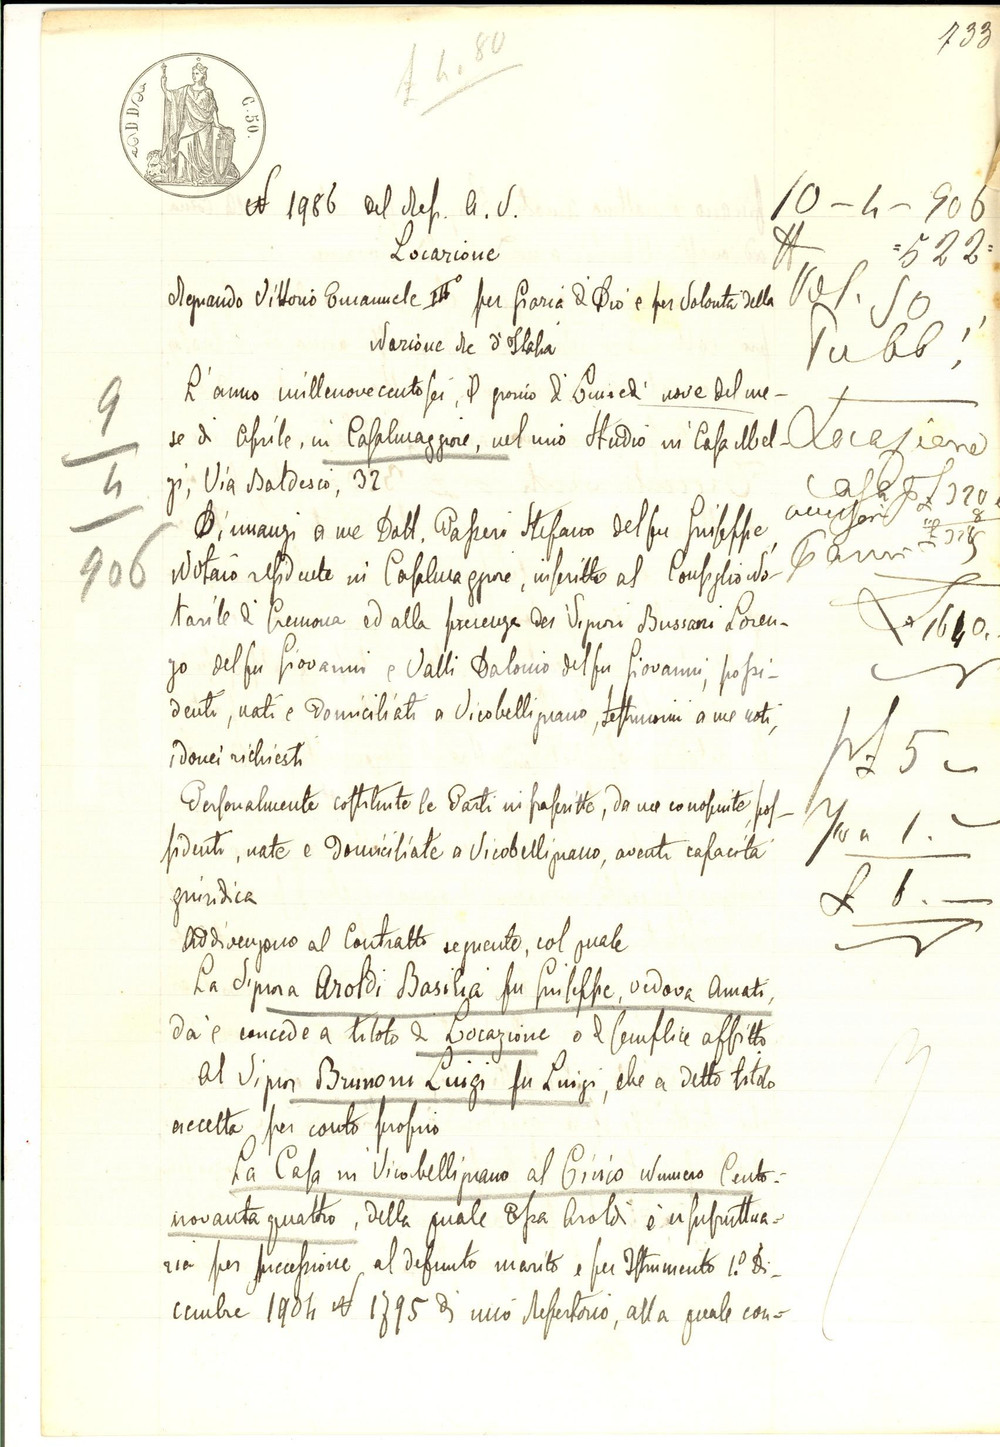 133
£ 4.80
C. 50.
N 1986 del Rep. A. V.
Locazione
Regnando Vittorio Emanuele III° per Grazia di Dio e per Volontà della
Nazione Re d'Italia
L'anno millenovecentosei, il giorno di Lunedì nove del me-
se di Aprile, in Casalmaggiore, nel mio Studio in Casa Mel-
gi, Via Baldesco, 32
Dinnanzi a me Dott. Passeri Stefano del fu Giuseppe,
Notaio residente in Casalmaggiore, inscritto al Consiglio No-
tarile di Cremona ed alla presenza dei Signori Bussani Loren-
zo del fu Giovanni e Valli del fu Giovanni, possi-
denti, nati e domiciliati a Vicobellignano, testimoni a me noti,
idonei richiesti
Personalmente costituite le Parti infrascritte, da me conosciute, pos-
sidenti, nate e domiciliate a Vicobellignano, aventi capacità
giuridica
Addivengono al Contratto seguente, col quale
La Signora Aroldi Basilia fu Giuseppe, vedova Amati,
dà e concede a titolo di Locazione o di semplice affitto
al Signor Brunoni Luigi fu Luigi, che a detto titolo
accetta per conto proprio
La Casa in Vicobellignano al Civico Numero Cento-
novantaquattro, della quale Essa Aroldi è usufruttua-
ria per successione al defunto marito e per Istrumento 1.° Di-
cembre 1904 N 1795 di mio Repertorio, alla quale con-
9
4
906
10-4-906
N =522=
Vol. 50
Pubb!
Locazione
casa
£ 320
£ 328
£ 1640.
£ 5
1.
£ 6.